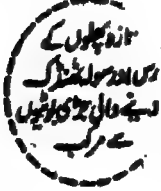 تازہ پھلوں کے
رس اور سولہ ٹھنڈک
دینے والی جڑی بوٹیوں
سے مرکب